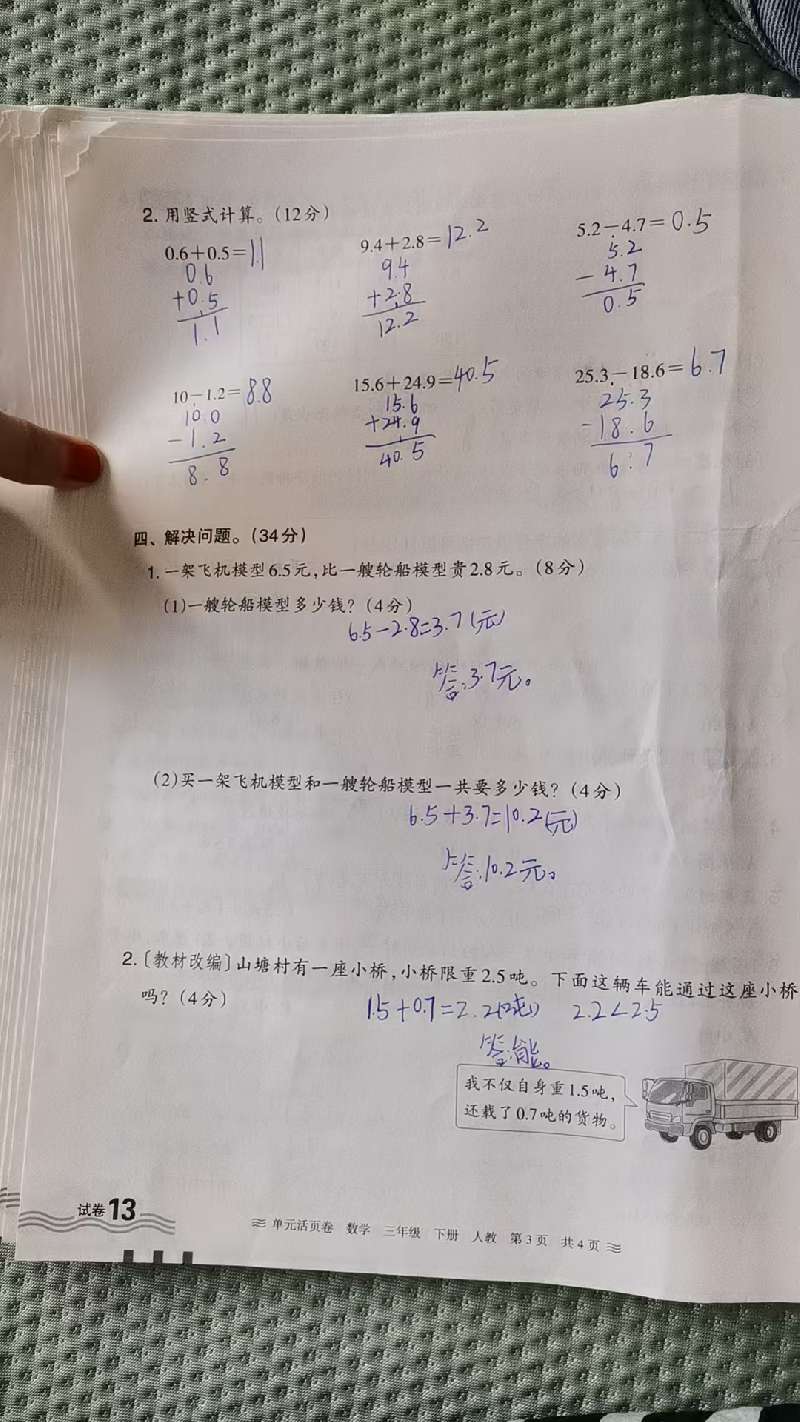 2. 用竖式计算。(12分)
0.6+0.5=1.1
9.4+2.8=12.2
5.2-4.7=0.5
0.6
+0.5
1.1
9.4
+2.8
12.2
5.2
-4.7
0.5
10-1.2=8.8
15.6+24.9=40.5
25.3-18.6=6.7
10.0
-1.2
8.8
15.6
+24.9
40.5
25.3
-18.6
6.7
四、解决问题。(34分)
1. 一架飞机模型6.5元,比一艘轮船模型贵2.8元。(8分)
(1)一艘轮船模型多少钱?(4分)
6.5-2.8=3.7(元)
答:3.7元。
(2)买一架飞机模型和一艘轮船模型一共要多少钱?(4分)
6.5+3.7=10.2(元)
答:10.2元。
2.〔教材改编〕山塘村有一座小桥,小桥限重2.5吨。下面这辆车能通过这座小桥
吗?(4分)
1.5+0.7=2.2(吨) 2.2<2.5
答:能。
我不仅自身重1.5吨,
还载了0.7吨的货物。
试卷13
单元活页卷 数学 三年级 下册 人教 第3页 共4页